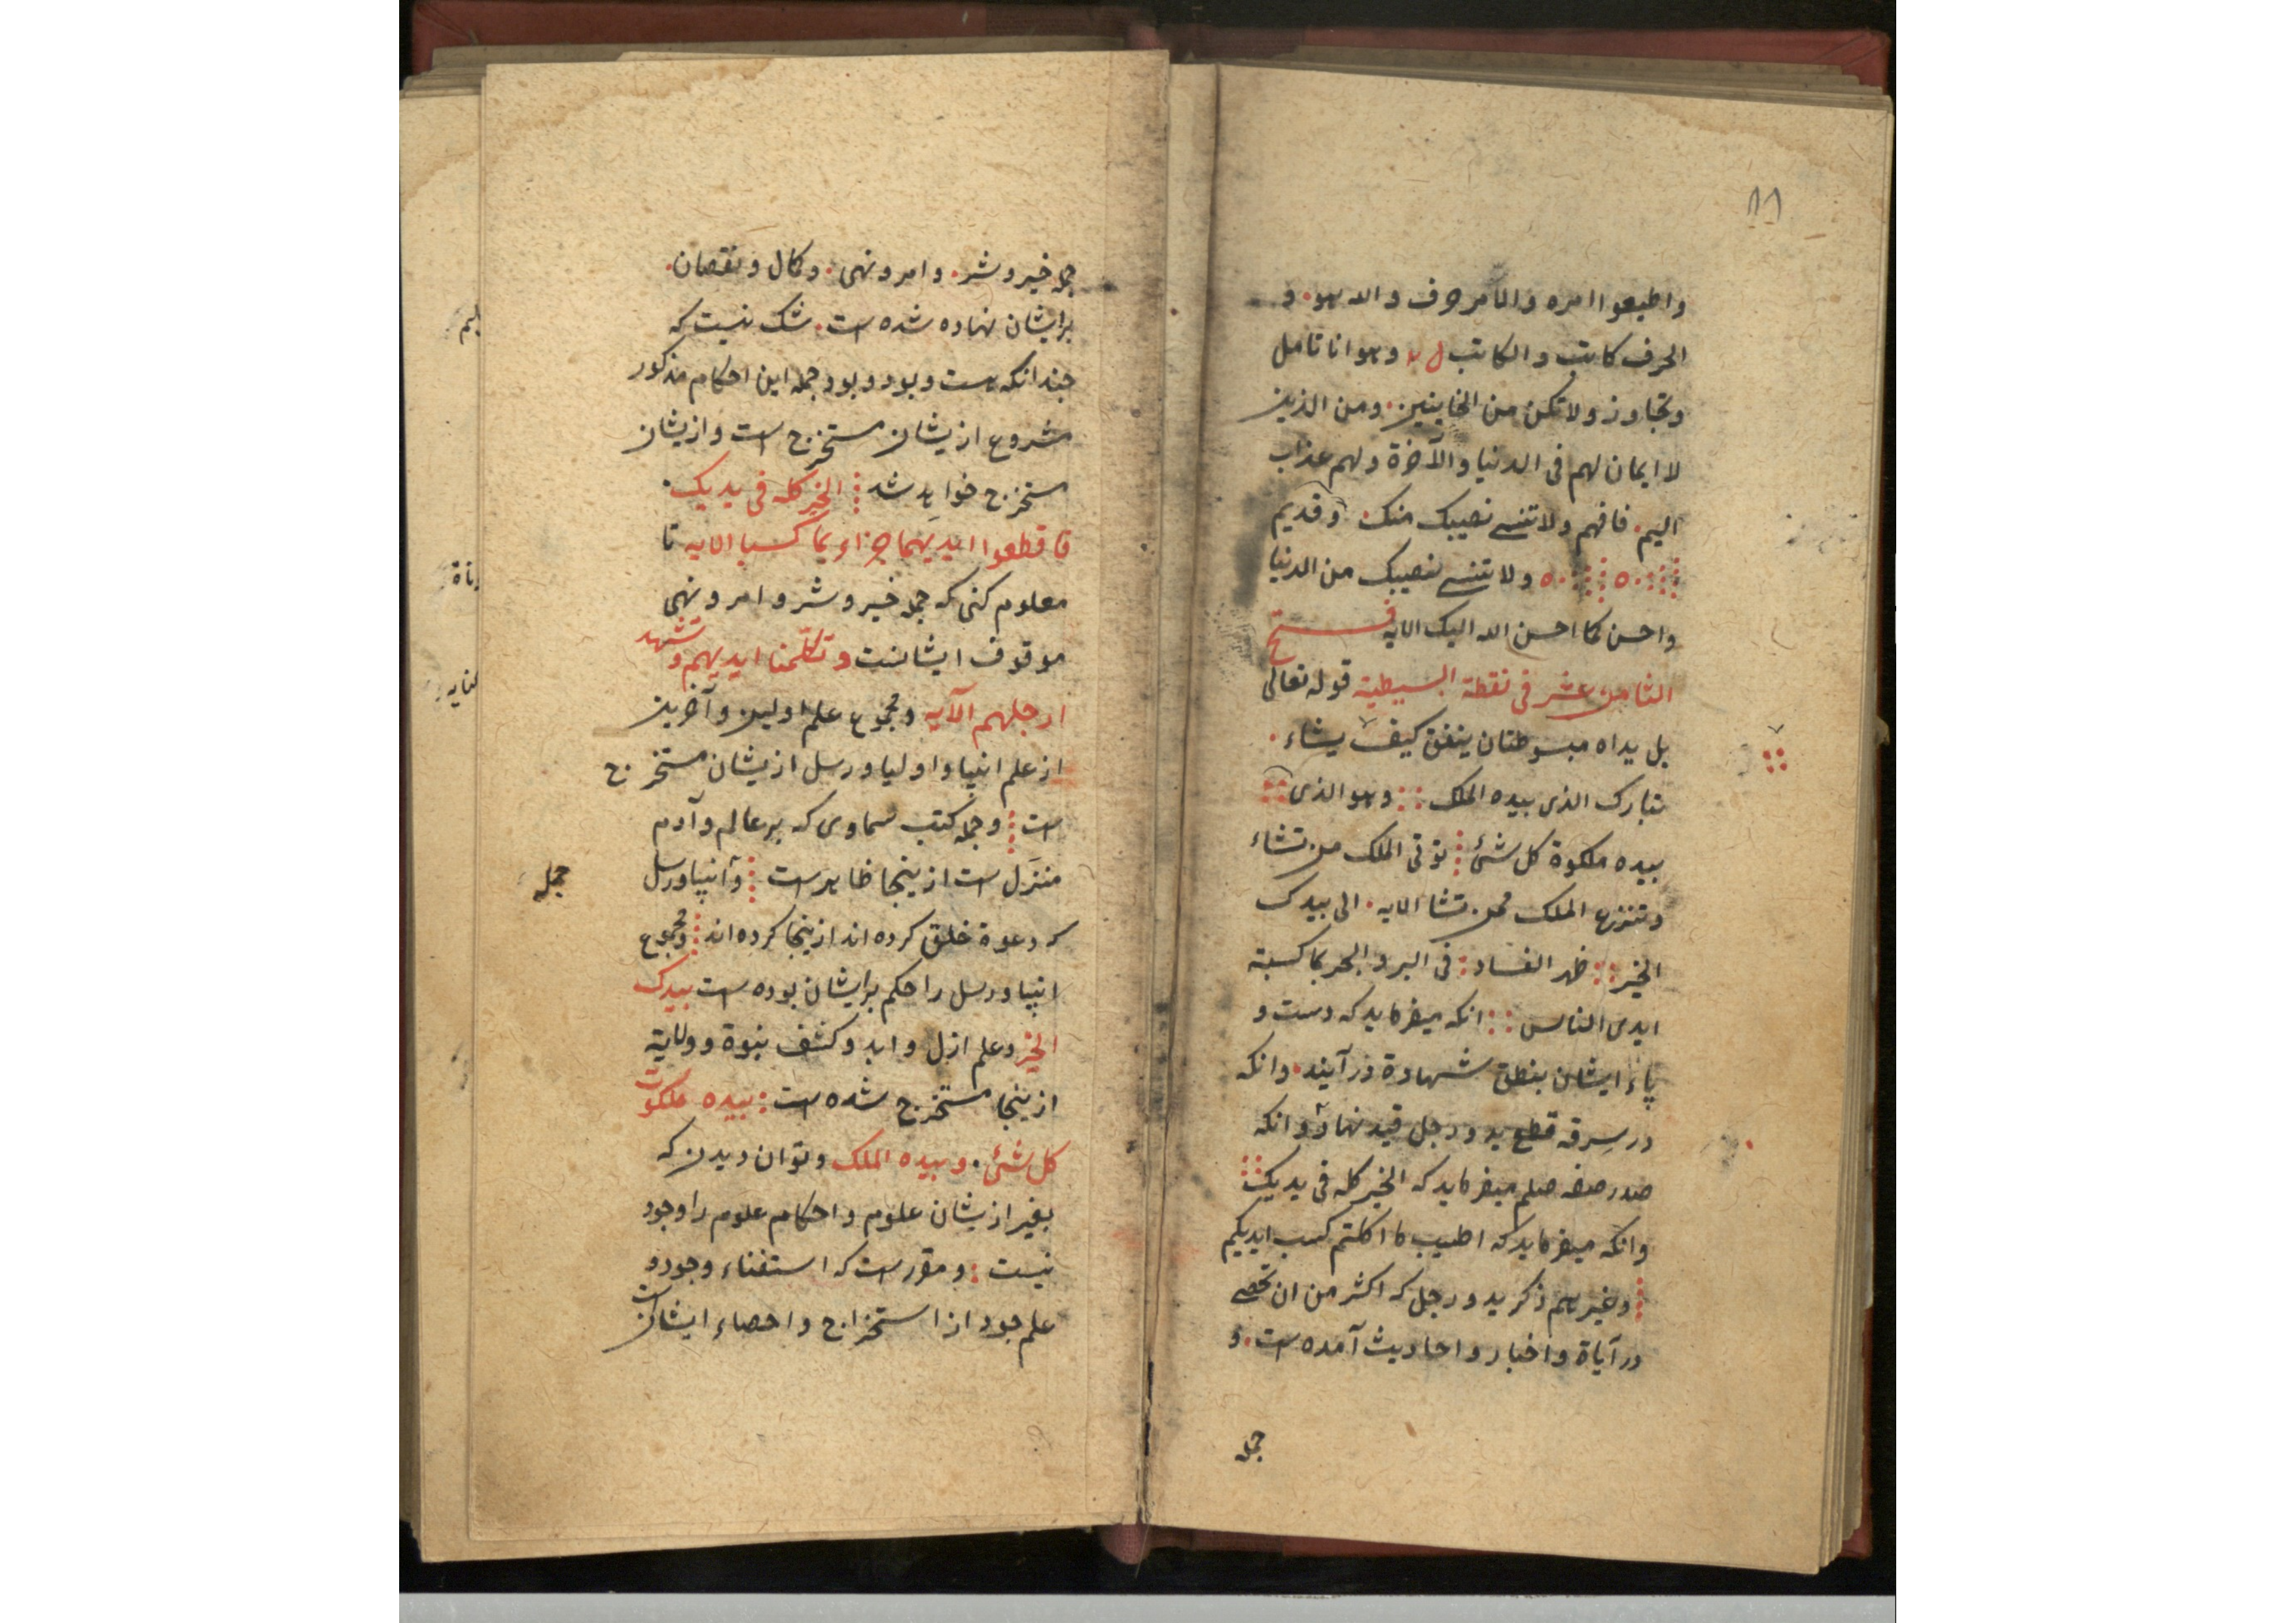 ١١
واطیعوا امره والامر حرف و الله هو و
الحرف کاتب و الکاتب وهو انا تامل
وتجاوز ولا تکن من الخاینین ومن الذین
لا ایمان لهم فی الدنیا و الآخرة و لهم عذاب
الیم فافهم ولا تنسی نصیبک منک و قدیم
ولا تنسی نصیبک من الدنیا
واحسن کما احسن الله الیک الایه فتح
الثامن عشر فی نقطة البسیطیة قوله تعالی
بل یداه مبسوطتان ینفق کیف یشاء
تبارک الذی بیده الملک وهو الذی
بیده ملکوة کل شئ توتی الملک من تشاء
وتنزع الملک ممن تشا الایه الی بیدک
الخیر ظهر الفساد فی البر و البحر بما کسبة
ایدی الناس انکه میفرماید که دست و
پاء ایشان بنطق شهادة در آیند وانکه
در سرقه قطع ید و رجل قید نهاد و انکه
صدر صفه صلم میفرماید که الخیر کله فی یدیک
وانکه میفرماید که اطیب ما اکلتم کسب ایدیکم
وغیرهم ذکر ید و رجل که اکثر من ان تحصی
در آیاة و اخبار و احادیث آمده است و
جمله
جمله خیر و شر و امر و نهی و کمال و نقصان
برایشان نهاده شده است شک نیست که
چندانکه هست و بود و بود جمله این احکام مذکور
مشروع ازیشان مستخرج است وازیشان
مستخرج خواهد شد الخیر کله فی یدیک
فاقطعوا ایدیهما جزاء بما کسبا الایه تا
معلوم کنی که جمله خیر و شر و امر و نهی
موقوف ایشانست و تکلمنا ایدیهم و تشهد
ارجلهم الآیه و مجموع علم اولین و آخرین
از علم انبیا و اولیا و رسل ازیشان مستخرج
است و جمله کتب سماوی که بر عالم و آدم
منزل است ازینجا ظاهر است و انبیا و رسل
جمله
که دعوة خلق کرده اند ازینجا کرده اند و مجموع
انبیا و رسل را حکم برایشان بوده است بیدک
الخیر و علم ازل و ابد و کشف نبوة و ولایة
ازینجا مستخرج شده است بیده ملکوت
کل شئ و بیده الملک و توان دیدن که
بغیر ازیشان علوم و احکام علوم را وجود
نیست و مقررست که استغناء وجود و
علم جود از استخراج و احصاء ایشان است